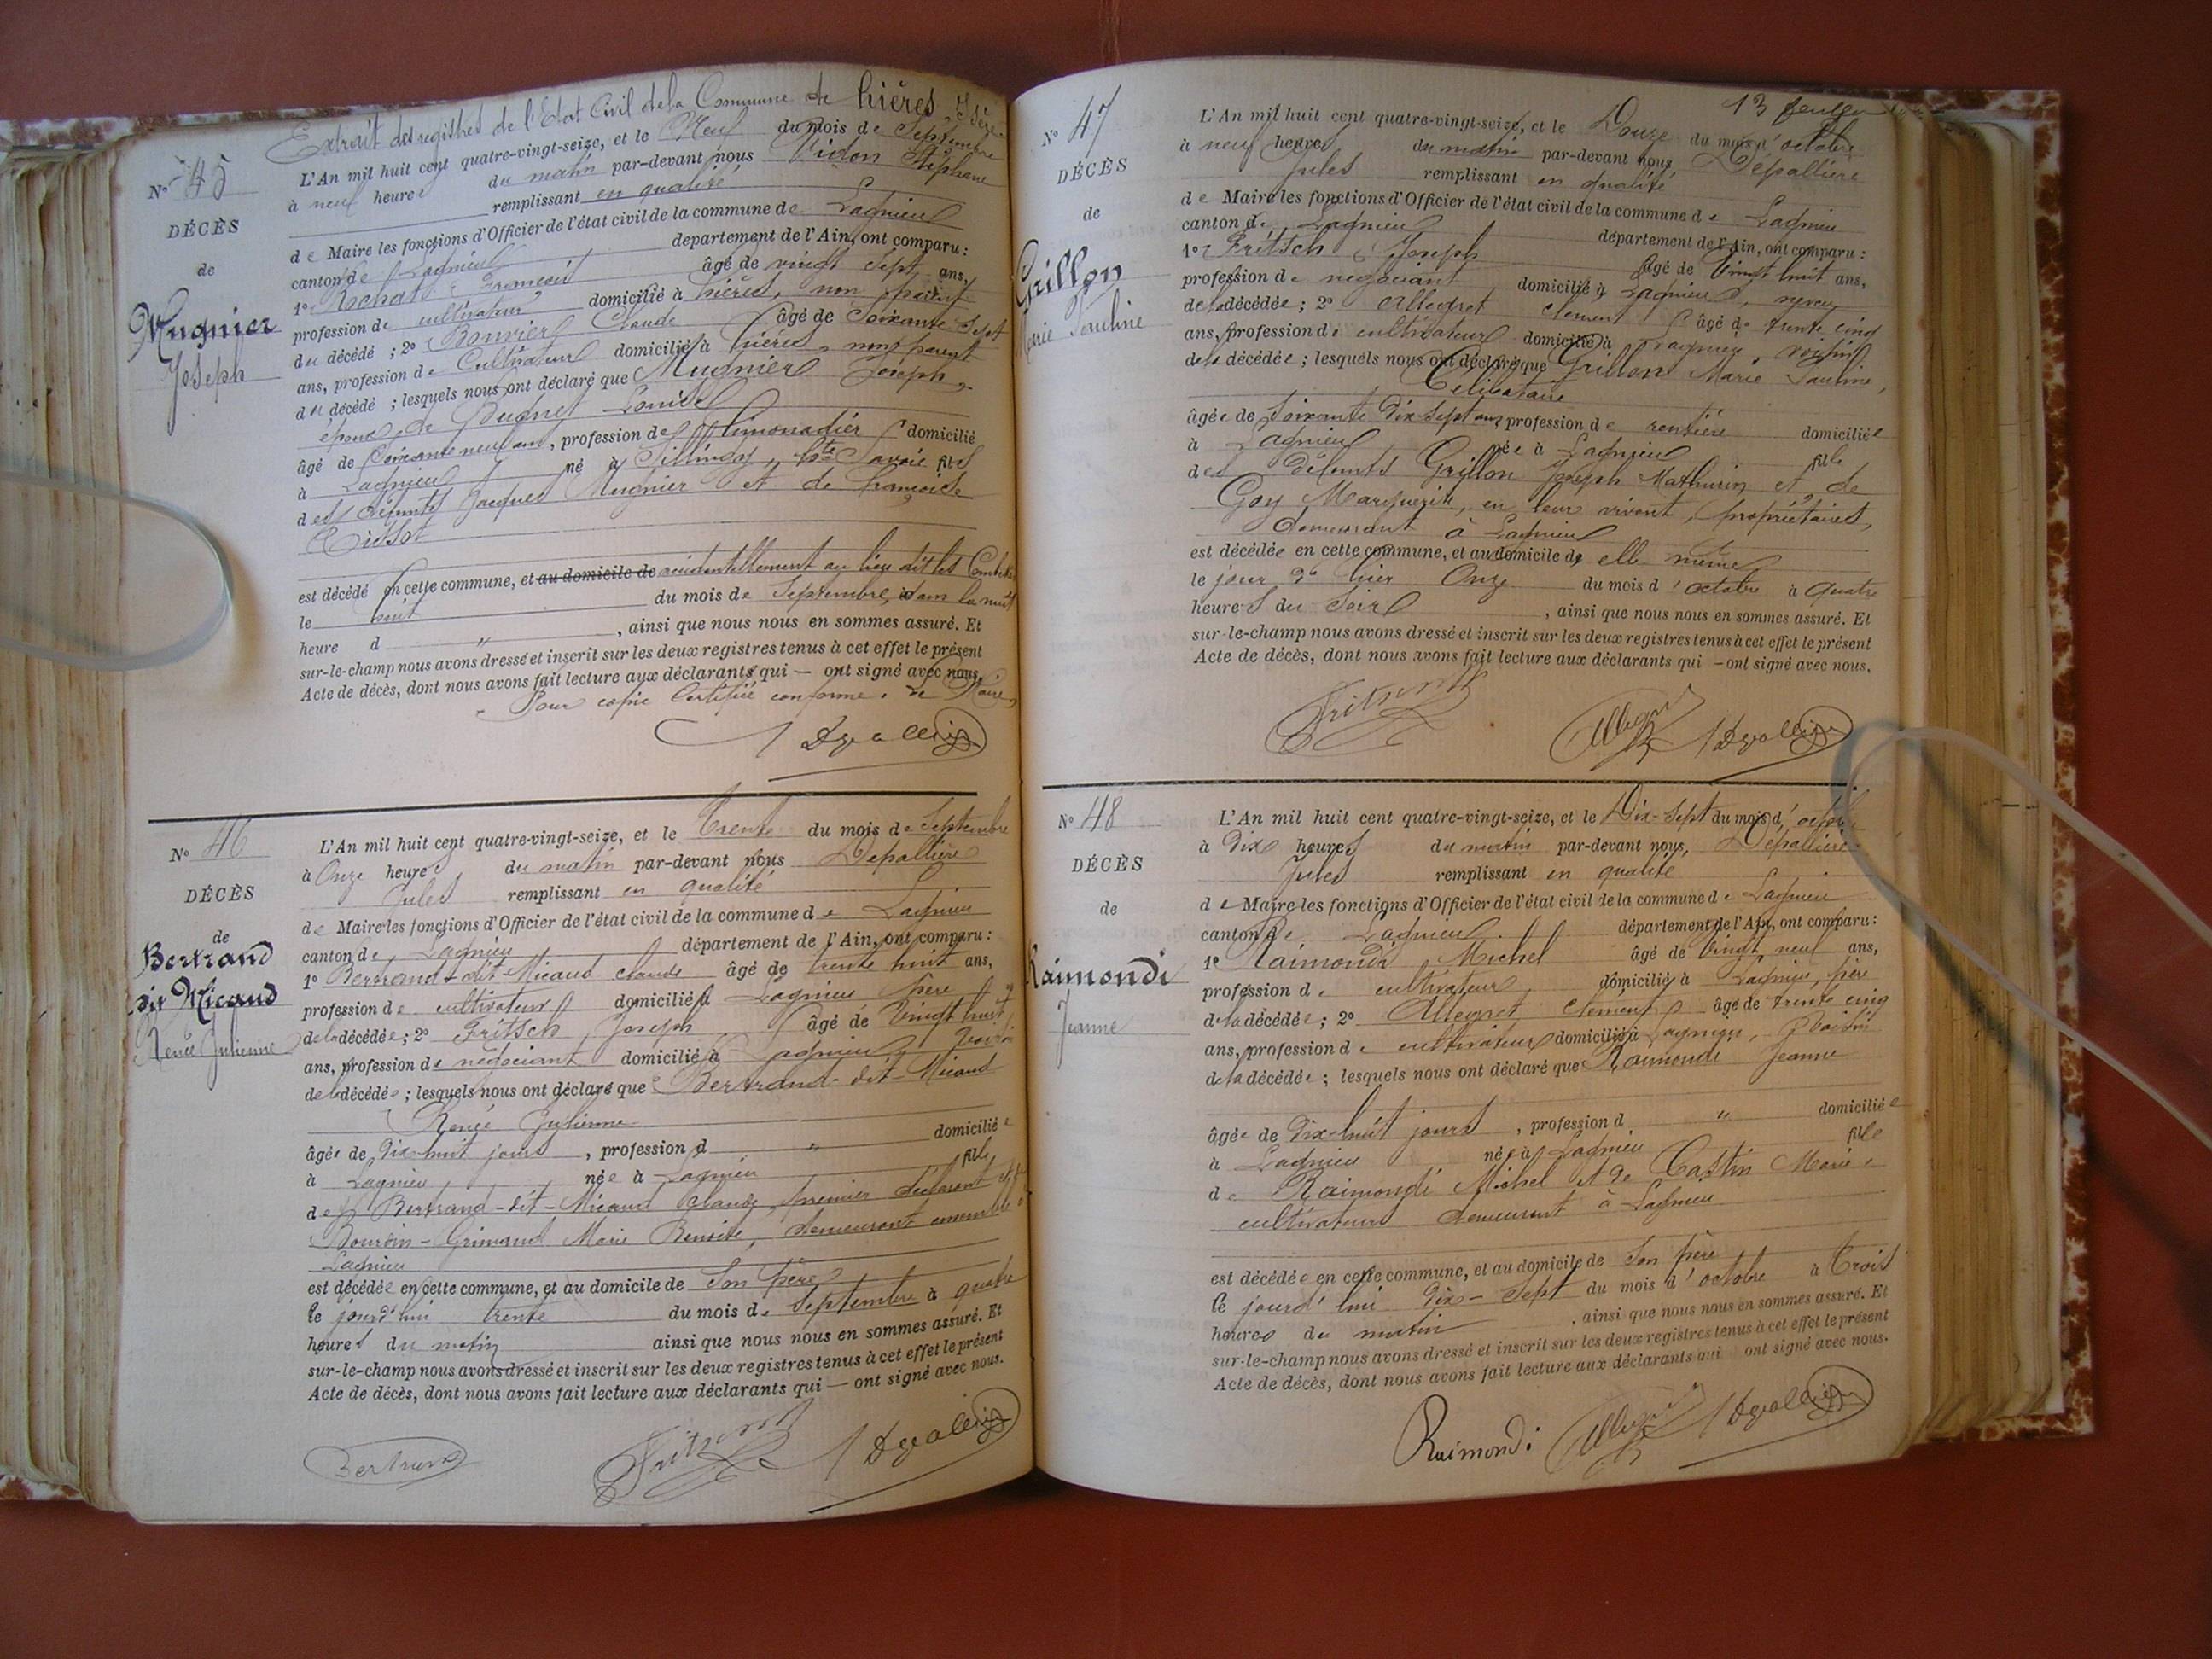 Extrait des registres de l'Etat Civil de la Commune de hières Isère
N° 45
DÉCÈS
de
Mugnier
Joseph
L'An mil huit cent quatre-vingt-seize, et le Neuf du mois de Septembre
à neuf heures du matin par-devant nous Vidon Stéphane
remplissant en qualité
de Maire les fonctions d'Officier de l'état civil de la commune de Lagnieu
canton de Lagnieu département de l'Ain, ont comparu :
1° Rochat François âgé de vingt sept ans,
profession de cultivateur domicilié à hières, non parent
du décédé ; 2° Bouvier Claude âgé de Soixante Sept
ans, profession de Cultivateur domicilié à hières, non parent
du décédé ; lesquels nous ont déclaré que Mugnier Joseph,
époux de Louise
âgé de Soixante neuf ans, profession de limonadier domicilié
à Lagnieu né à Sillingy, hte Savoie fils
des défunts Jacques Mugnier et de françoise
est décédé en cette commune, et au domicile de accidentellement au lieu dit les
le huit du mois de Septembre, dans la nuit
heure d " , ainsi que nous nous en sommes assuré. Et
sur-le-champ nous avons dressé et inscrit sur les deux registres tenus à cet effet le présent
Acte de décès, dont nous avons fait lecture aux déclarants qui — ont signé avec nous.
Pour copie Certifiée conforme. Le Maire,
N° 46
DÉCÈS
de
Bertrand
dit Micaud
Renée Julienne
L'An mil huit cent quatre-vingt-seize, et le trente du mois de Septembre
à Onze heures du matin par-devant nous Dépallière
Jules remplissant en qualité
de Maire les fonctions d'Officier de l'état civil de la commune de Lagnieu
canton de Lagnieu département de l'Ain, ont comparu :
1° Bertrand-dit-Micaud claude âgé de trente huit ans,
profession de cultivateur domicilié à Lagnieu père
de la décédée ; 2° Fritsch Joseph âgé de Vingt huit
ans, profession de négociant domicilié à Lagnieu
de la décédée ; lesquels nous ont déclaré que Bertrand-dit-Micaud
Renée Julienne
âgée de Dix-huit jours , profession d " domiciliée
à Lagnieu née à Lagnieu fille
de Bertrand-dit-Micaud Claude, premier déclarant et de
Bourdin-Grimaud Marie Benoite, demeurant ensemble à
Lagnieu
est décédée en cette commune, et au domicile de Son père
le jourd'hui trente du mois de Septembre à quatre
heures du matin ainsi que nous nous en sommes assuré. Et
sur-le-champ nous avons dressé et inscrit sur les deux registres tenus à cet effet le présent
Acte de décès, dont nous avons fait lecture aux déclarants qui — ont signé avec nous.
Bertrand
13
N° 47
DÉCÈS
de
Grillon
Marie Pauline
L'An mil huit cent quatre-vingt-seize, et le Douze du mois d'octobre
à neuf heures du matin par-devant nous Dépallière
Jules remplissant en qualité
de Maire les fonctions d'Officier de l'état civil de la commune de Lagnieu
canton de Lagnieu département de l'Ain, ont comparu :
1° Fritsch Joseph âgé de Vingt huit ans,
profession de négociant domicilié à Lagnieu, neveu
de la décédée ; 2° Allegret Clement âgé de trente cinq
ans, profession de cultivateur domicilié à Lagnieu, voisin
de la décédée ; lesquels nous ont déclaré que Grillon Marie Pauline,
Célibataire
âgée de Soixante Dix-Sept ans, profession de rentière domiciliée
à Lagnieu née à Lagnieu fille
des défunts Grillon Joseph Mathurin et de
Goy Marguerite, en leur vivant, propriétaires,
demeurant à Lagnieu
est décédée en cette commune, et au domicile de elle même
le jour d'hier Onze du mois d'octobre à quatre
heures du Soir , ainsi que nous nous en sommes assuré. Et
sur-le-champ nous avons dressé et inscrit sur les deux registres tenus à cet effet le présent
Acte de décès, dont nous avons fait lecture aux déclarants qui — ont signé avec nous.
N° 48
DÉCÈS
de
Raimondi
Jeanne
L'An mil huit cent quatre-vingt-seize, et le Dix-Sept du mois d'octobre
à Dix heures du matin par-devant nous, Dépallière
Jules remplissant en qualité
de Maire les fonctions d'Officier de l'état civil de la commune de Lagnieu
canton de Lagnieu département de l'Ain, ont comparu :
1° Raimondi Michel âgé de Vingt neuf ans,
profession de cultivateur domicilié à Lagnieu, père
de la décédée ; 2° Allegret Clement âgé de trente cinq
ans, profession de cultivateur domicilié à Lagnieu, Voisin
de la décédée ; lesquels nous ont déclaré que Raimondi Jeanne
âgée de Dix-huit jours , profession d " domiciliée
à Lagnieu née à Lagnieu fille
de Raimondi Michel et de Castin Marie
cultivateurs demeurant à Lagnieu
est décédée en cette commune, et au domicile de Son père
le jourd'hui Dix-Sept du mois d'octobre à trois
heures du matin , ainsi que nous nous en sommes assuré. Et
sur-le-champ nous avons dressé et inscrit sur les deux registres tenus à cet effet le présent
Acte de décès, dont nous avons fait lecture aux déclarants qui ont signé avec nous.
Raimondi